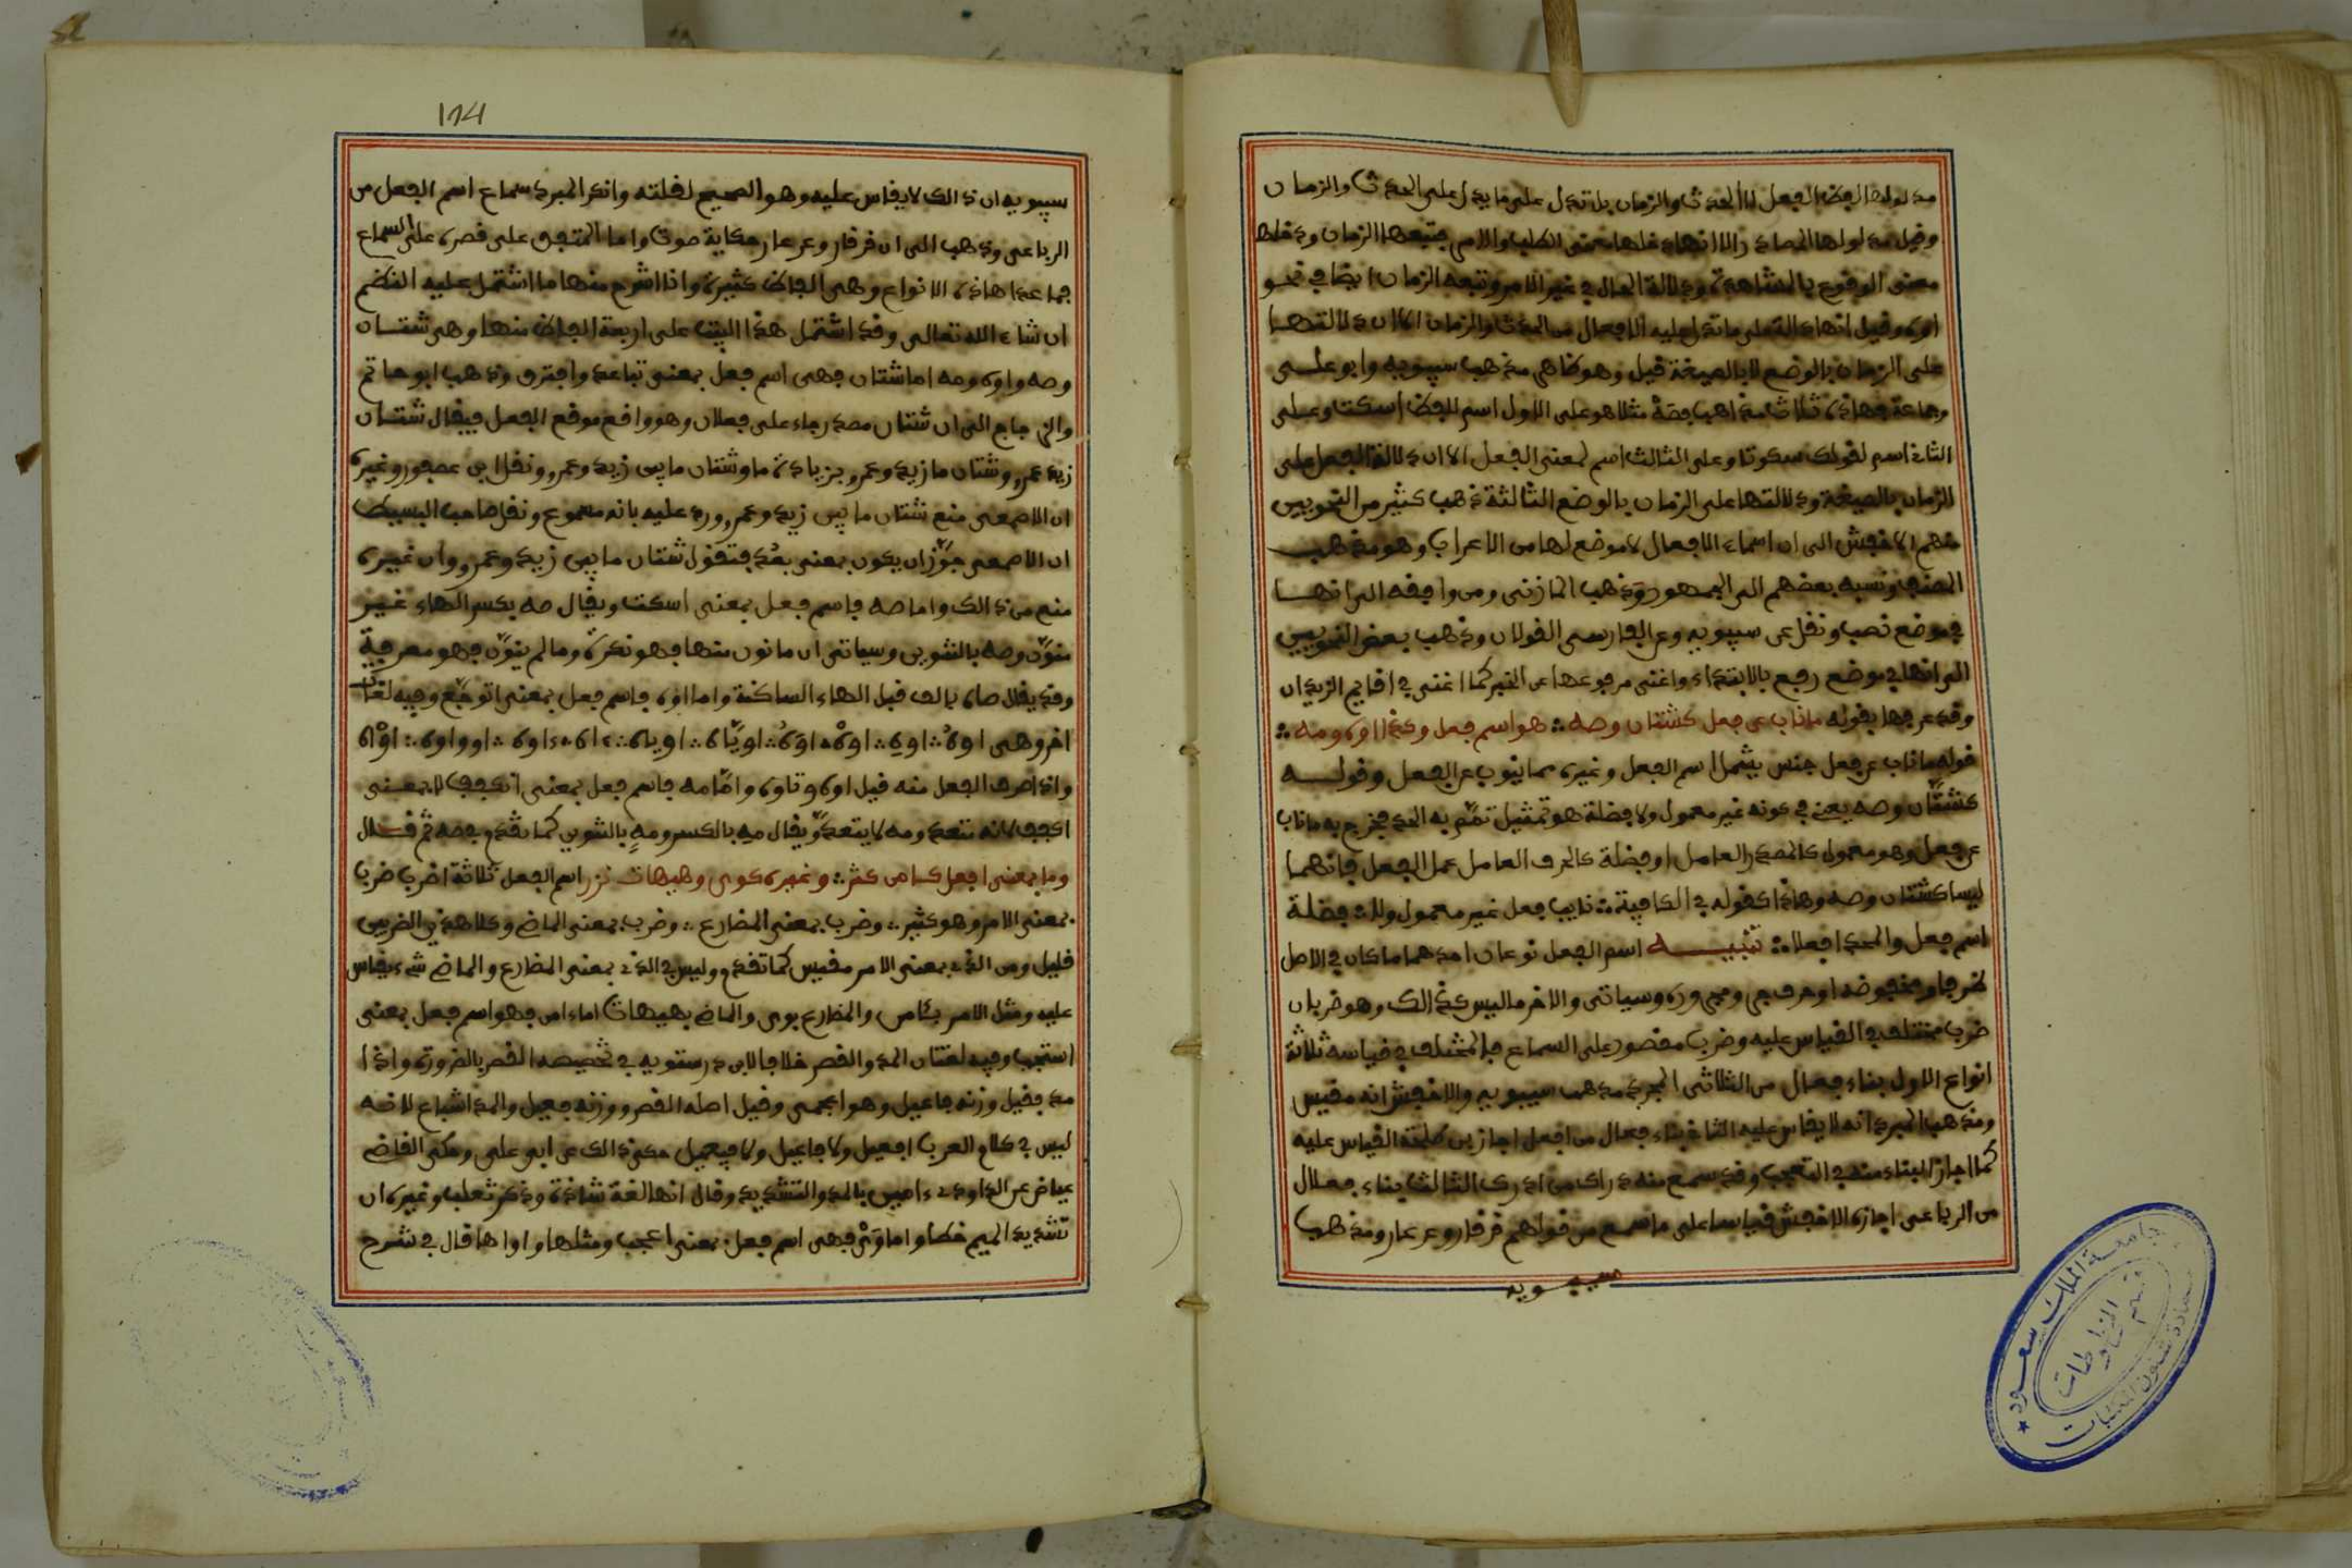 مدلولها لفظ الفعل لا الحدث والزمان بل تدل على ما يدل على الحدث والزمان
وقيل مدلولها المصادر الا انها دخلها معنى الطلب والامر فتبعها الزمان ودخلها
معنى الوقوع بالمشاهدة ودلالة الحال في غير الامر وتبعه الزمان ايضا في نحو
اوه وقيل انها دالة على ما تدل عليه الافعال من الحدث والزمان الا ان دلالتها
على الزمان بالوضع لا بالصيغة قيل وهو ظاهر مذهب سيبويه وابو علي
وجماعة فهاذه ثلاث مذاهب فصه مثلا هو على الاول اسم للفظ اسكت وعلى
الثاني اسم لقولك سكوتا وعلى الثالث اسم لمعنى الفعل الا ان دلالة الفعل على
الزمان بالصيغة ودلالتها على الزمان بالوضع الثالثة ذهب كثير من النحويين
منهم الاخفش الى ان اسماء الافعال لا موضع لها من الاعراب وهو مذهب
المصنف ونسبه بعضهم الى الجمهور وذهب المازني ومن وافقه الى انها
في موضع نصب ونقل عن سيبويه وعن الفارسي القولان وذهب بعض النحويين
الى انها في موضع رفع بالابتداء واغنى مرفوعها عن الخبر كما اغنى في اقايم الزيدان
وقد عرفها بقوله ما ناب عن فعل كشتان وصه ؞ هو اسم فعل وكذا اوه ومه ؞
قوله ما ناب عن فعل جنس يشمل اسم الفعل وغيره مما ينوب عن الفعل وقوله
كشتان وصه يعني في كونه غير معمول ولا فضلة هو تمثيل تمم به الحد فخرج به ما ناب
عن فعل وهو معمول كالمصدر العامل او فضلة كالحرف العامل عمل الفعل فانهما
ليسا كشتان وصه وهاذا كقوله في الكافية ؞ نايب فعل غير معمول ولا ؞ فضلة
اسم فعل والحد افعلا ؞ تنبيه اسم الفعل نوعان احدهما ما كان في الاصل
ظرفا او مخفوضه او حرف جر ومجروره وسياتي والاخر ما ليس كذالك وهو ضربان
ضرب مختلف في القياس عليه وضرب مقصور على السماع فالمختلف في قياسه ثلاثة
انواع الاول بناء فعال من الثلاثي المجرد مذهب سيبويه والاخفش انه مقيس
ومذهب المبرد انه لا يقاس عليه الثاني بناء فعال من افعل اجاز بن طلحة القياس عليه
كما اجاز البناء منه في التعجب وقد سمع منه دراك من ادرك الثالث بناء فعلال
من الرباعي اجازه الاخفش قياسا على ما سمع من قولهم قرقار وعرعار ومذهب
سيبويه
174
سيبويه ان ذالك لا يقاس عليه وهو الصحيح لقلته وانكر المبرد سماع اسم الفعل من
الرباعي وذهب الى ان قرقار وعرعار حكاية صوت واما المتفق على قصره على السماع
فما عدا هاذه الانواع وهي الفاظ كثيرة وانا اشرح منها ما اشتمل عليه النظم
ان شاء الله تعالى وقد اشتمل هذا البيت على اربعة الفاظ منها وهي شتان
وصه واوه ومه اما شتان فهي اسم فعل بمعنى تباعد وافترق وذهب ابو حاتم
والزجاج الى ان شتان مصدر جاء على فعلان وهو واقع موقع الفعل فيقال شتان
زيد عمرو وشتان ما زيد وعمرو بزيادة ما وشتان ما بين زيد وعمرو ونقل ابن عصفور وغيره
ان الاصمعي منع شتان ما بين زيد وعمرو ورد عليه بانه مسموع ونقل صاحب البسيط
ان الاصمعي جوّز ان يكون بمعنى بعُد فتقول شتان ما بين زيد وعمرو وان غيره
منع من ذالك واما صه فاسم فعل بمعنى اسكت ويقال صه بكسر الهاء غير
منوّن وصه بالتنوين وسياتي ان ما نون منها فهو نكرة وما لم ينوّن فهو معرفة
وقد يقال صاه بالف قبل الهاء الساكنة واما اوه فاسم فعل بمعنى اتوجّع وفيه لغات
اخر وهي اوهُ ؞ اوهِ ؞ اوْه ؞ اوَهُ ؞ اويّاه ؞ اوياه ؞ ءاه ؞ اوه ؞ اوواوه ؞ اوْاه
واذا صرف الفعل منه قيل اوه وتاوه وامّا مه فاسم فعل بمعنى انكفف لا بمعنى
اكفف لانه متعد ومه لا يتعدّ ويقال مه بالكسر ومهٍ بالتنوين كما تقدم في صه ثم قال
وما بمعنى افعل كـامين كثر ؞ وغيره كوى وهيهات نزر اسم الفعل ثلاثة اضرب ضرب
بمعنى الامر وهو كثير ؞ وضرب بمعنى المضارع ؞ وضرب بمعنى الماضي وكلا هذين الضربين
قليل ومن الذي بمعنى الامر مقيس كما تقدم وليس في الذي بمعنى المضارع والماضي شيء يقاس
عليه ومثل الامر بئامين والمضارع بوى والماضي بهيهات اما ءامين فهو اسم فعل بمعنى
استجب وفيه لغتان المد والقصر خلافا لابن درستويه في تخصيصه القصر بالضرورة واذا
مد فقيل وزنه فاعيل وهو اعجمي وقيل اصله القصر ووزنه فعيل والمد اشباع لانه
ليس في كلام العرب افعيل ولا فاعيل ولا فيعيل حكى ذالك عن ابي علي وحكى القاضي
عياض عن الداودي ءامين بالمد والتشديد وقال انها لغة شاذة وذكر ثعلب وغيره ان
تشديد الميم خطا واما وَىْ فهي اسم فعل بمعنى اعجب ومثلها وا واها قال في شرح
جامعة الملك سعود
عمادة شئون المكتبات
قسم المخطوطات